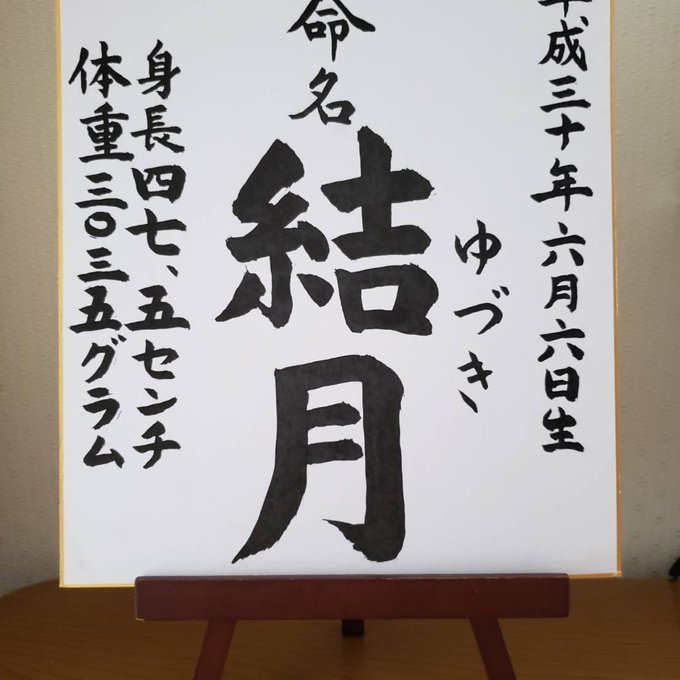 平成三十年六月六日生
命名
結月
ゆづき
身長四七、五センチ
体重三〇三五グラム